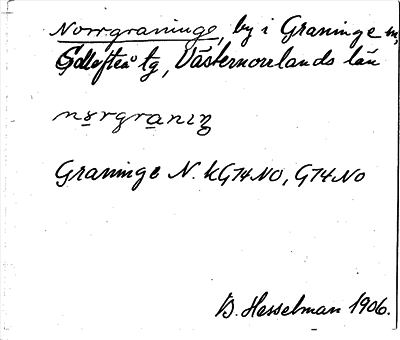 Norrgraninge, by i Graninge sn,
Sollefteå tg, Västernorrlands län
nørgranıŋ
Graninge N. kG74NO, G74NO
B. Hesselman 1906.